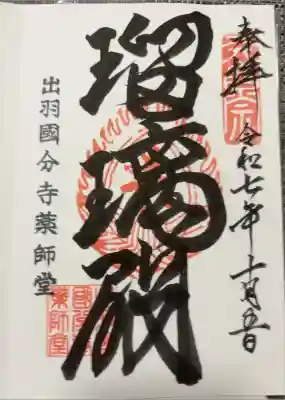 奉拝
令和七年十月五日
瑠璃殿
出羽國分寺薬師堂